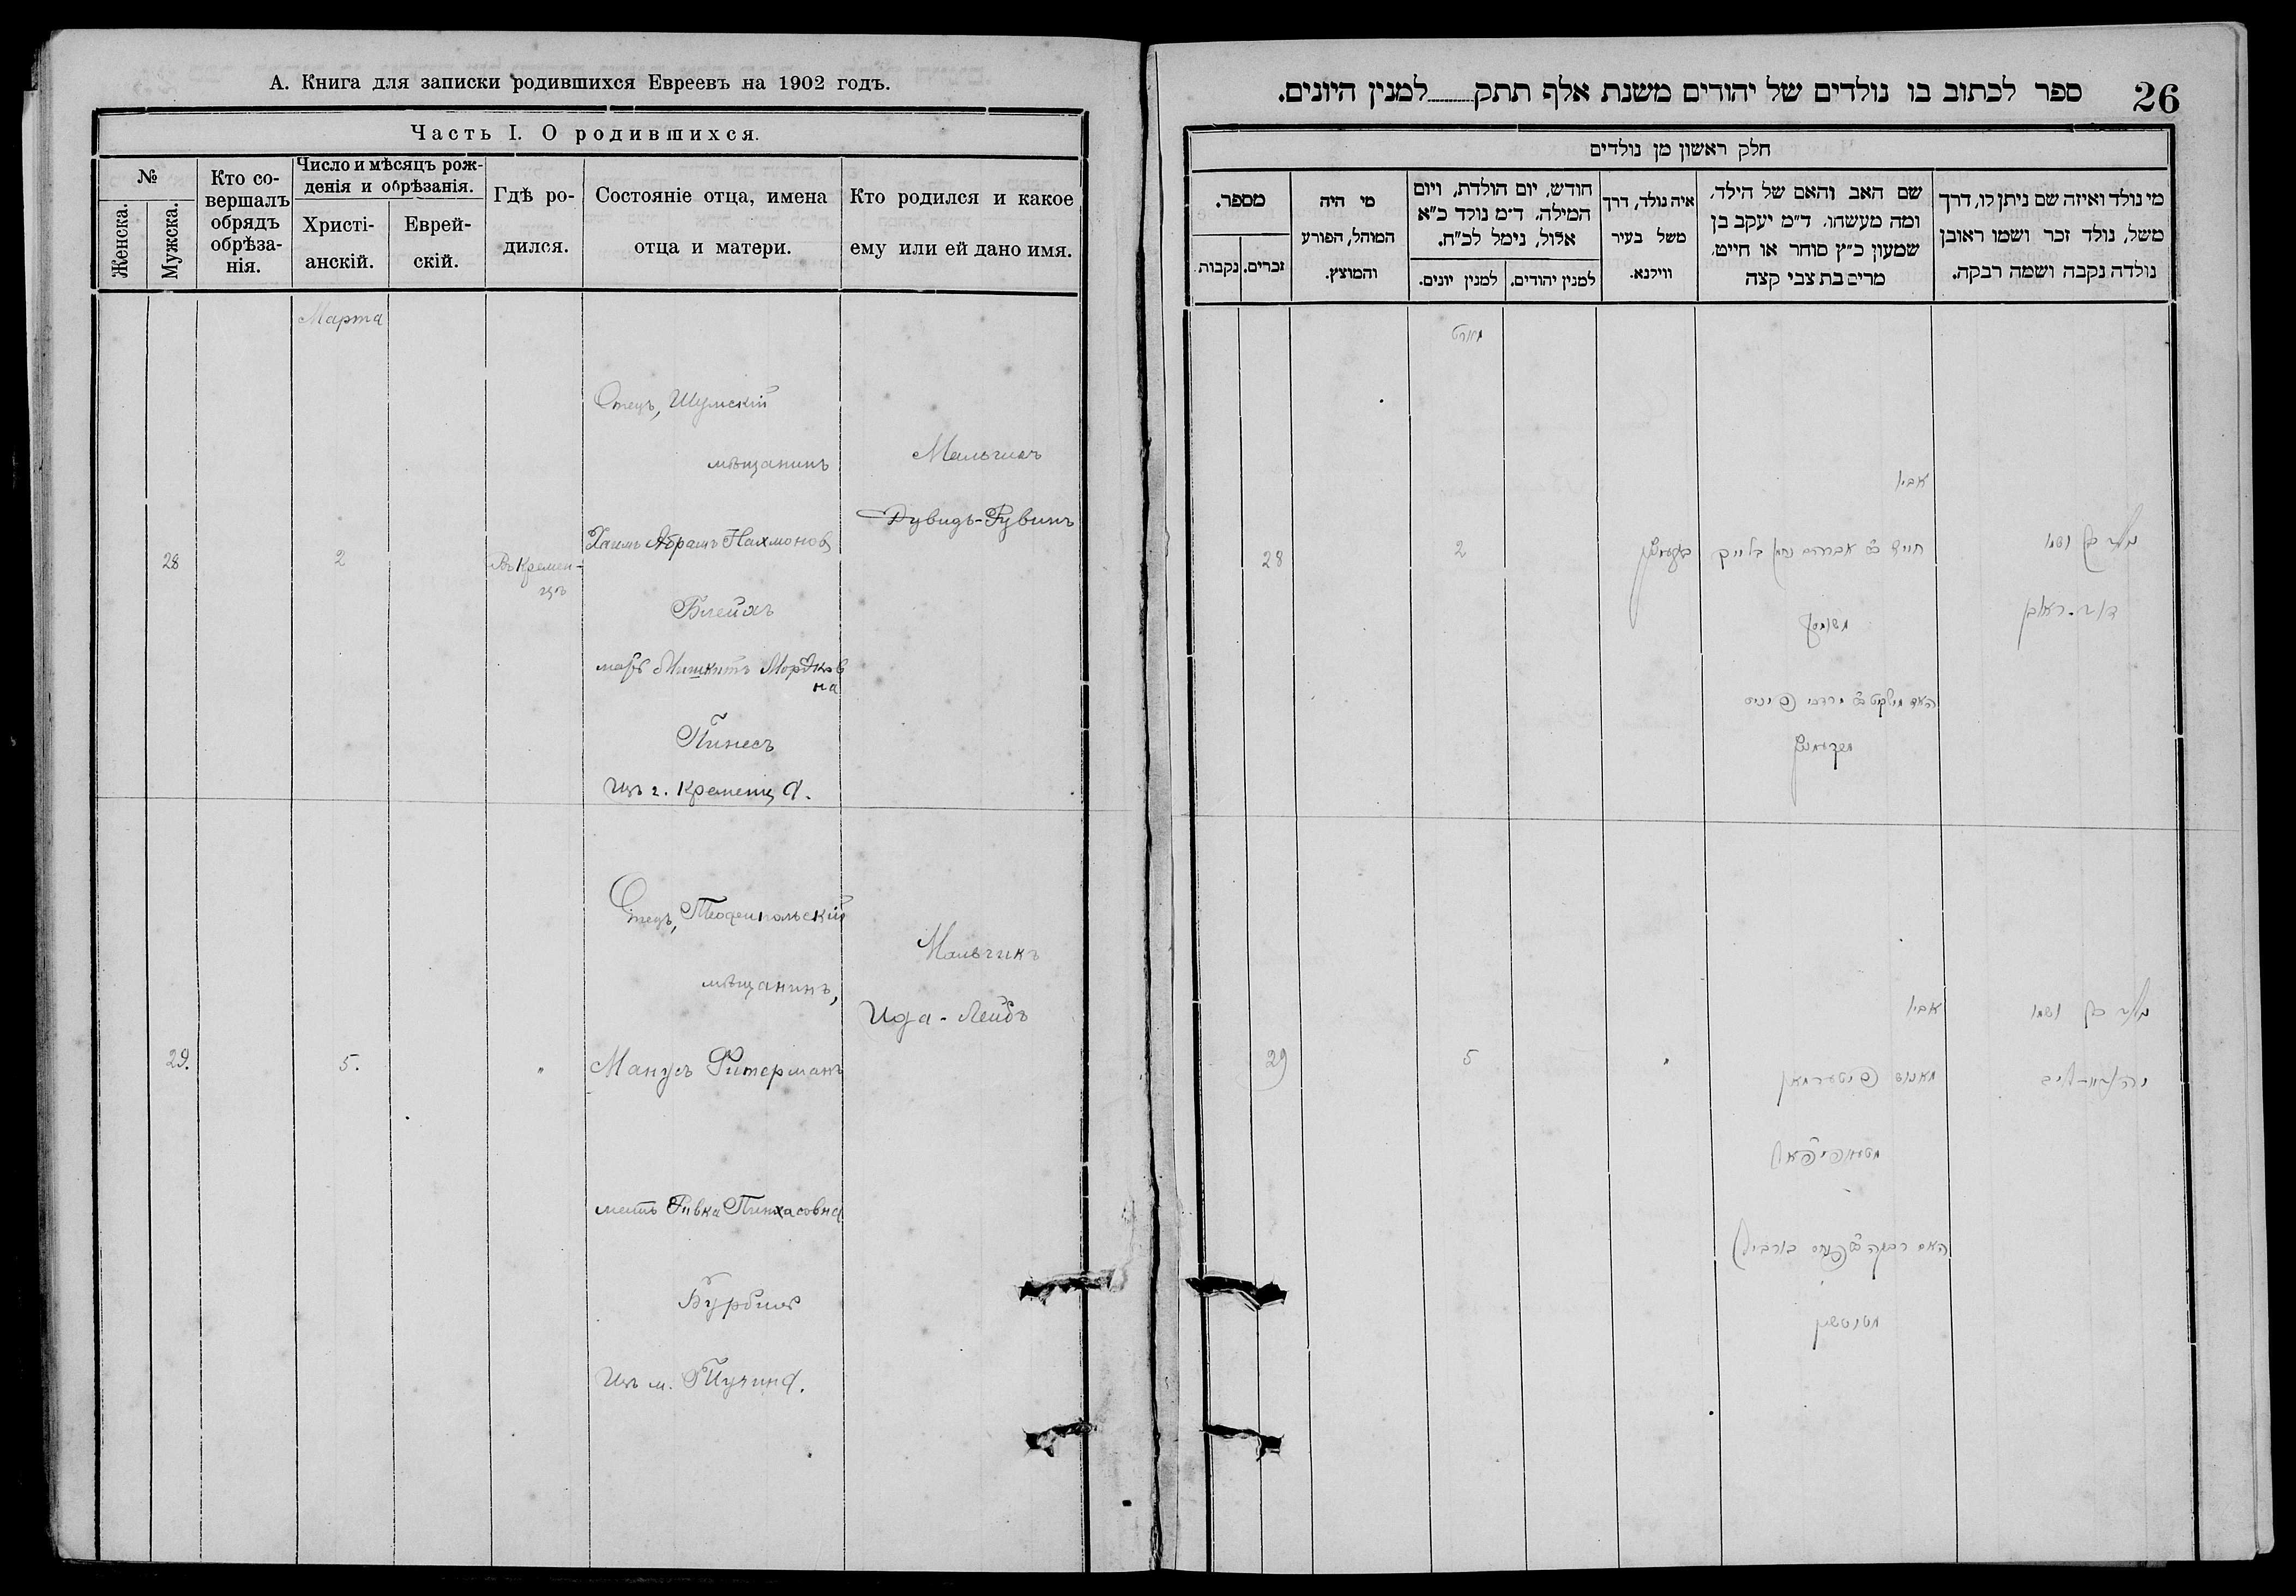 А. Книга для записки родившихся Евреевъ на 1902 годъ.
Часть I. О родившихся.
№
Женска.
Мужска.
Кто со-
вершалъ
обрядъ
обрѣза-
нія.
Число и мѣсяцъ рож-
денія и обрѣзанія.
Христі-
анскій.
Еврей-
скій.
Гдѣ ро-
дился.
Состояніе отца, имена
отца и матери.
Кто родился и какое
ему или ей дано имя.
Марта
28
2
Въ Кремен-
цѣ
Отецъ, Шумскій
мѣщанинъ
Хаимъ Абрамъ Нахмановъ
Блейхъ
мать Мордков
на
Пинесъ
Изъ г. Кременца.
Мальчикъ
Дувидъ-Рувинъ
29.
5.
"
Отецъ, Теофипольскій
мѣщанинъ,
Манусъ Фитерманъ
мать Ривка Пинхасовна
Бурбиль
Изъ м. Тучина.
Мальчикъ
Ида-Лейбъ
26
ספר לכתוב בו נולדים של יהודים משנת אלף תתק........למנין היונים.
חלק ראשון מן נולדים
מי נולד ואיזה שם ניתן לו, דרך
משל, נולד זכר ושמו ראובן
נולדה נקבה ושמה רבקה.
שם האב והאם של הילד,
ומה מעשהו. ד״מ יעקב בן
שמעון כ״ץ סוחר או חייט,
מרים בת צבי קצה
איה נולד, דרך
משל בעיר
ווילנא.
חודש, יום הולדת, ויום
המילה, ד״מ נולד כ״א
אלול, נימל לכ״ח.
למנין יהודים.
למנין יונים.
מי היה
המוהל, הפורע
והמוצץ.
מספר.
זכרים.
נקבות
מארט
נולד בן ושמו
דוד-ראובן
אביו
חיים ב״ר אברהם נחמן בלייך
משומסק
האם
2
28
נולד בן ושמו
אביו
מאנוס פיטערמאן
האם רבקה
"
5
29